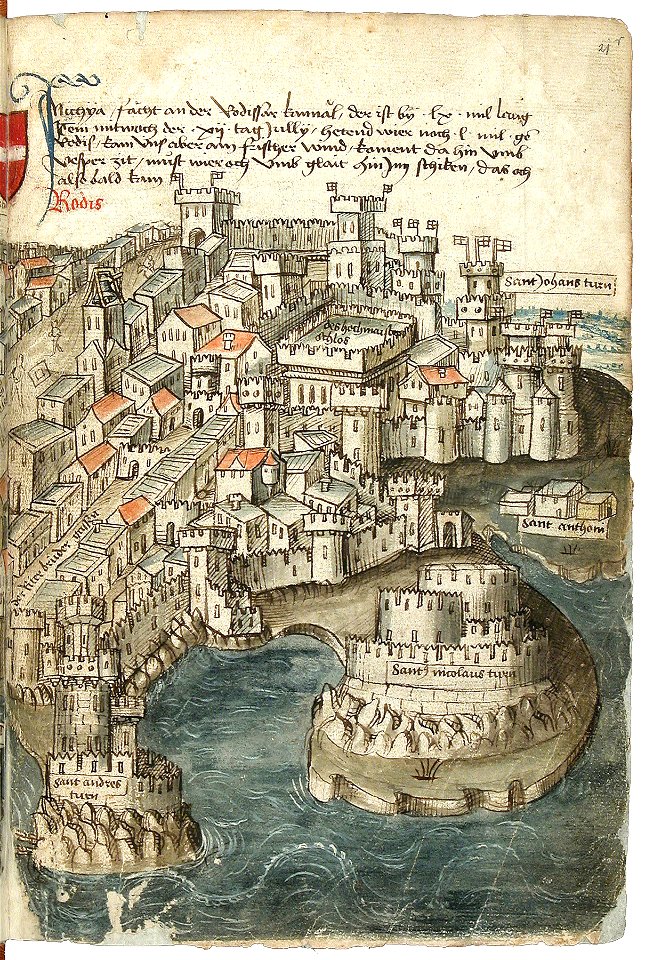 21r
Nichya / facht an der Rodissar kannal, der ist by · lx · mil lang
Item mitwoch der · xij · tag Jully, hetend wier noch · l · mil · ge
Rodis / kam uns aber ain frischer wind, koment da hin umb
vesper zit / must wier och umb glait hin In schiken / das och
also bald kam
Rodis
sant Johans turn
des hochmaisters
schlos
sant anthoni
sant nicolaus turn
sant andres
turn